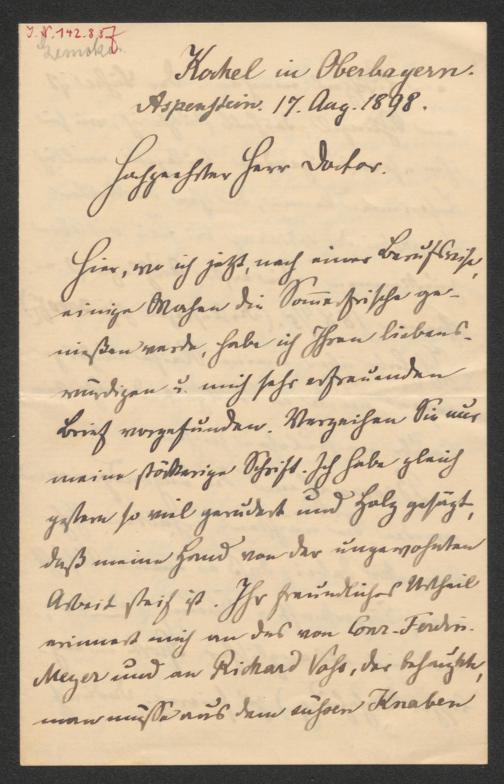 J. N. 142.857
Kochel in Oberbayern.
Aspenstein. 17. Aug. 1898.
Hochgeehrter Herr Doctor.
Hier, wo ich jetzt, nach einer Berufsreise,
einige Wochen die Sommerfrische ge-
nießen werde, habe ich Ihren liebens-
würdigen u. mich sehr erfreuenden
Brief vorgefunden. Verzeihen Sie nur
meine stöckerige Schrift. Ich habe gleich
gestern so viel gerudert und Holz gesägt,
daß meine Hand von der ungewohnten
Arbeit steif ist. Ihr freundliches Urtheil
erinnert mich an das von Conr. Ferdin.
Meyer und an Richard Voß, der behauptete,
man müsse aus dem Knaben